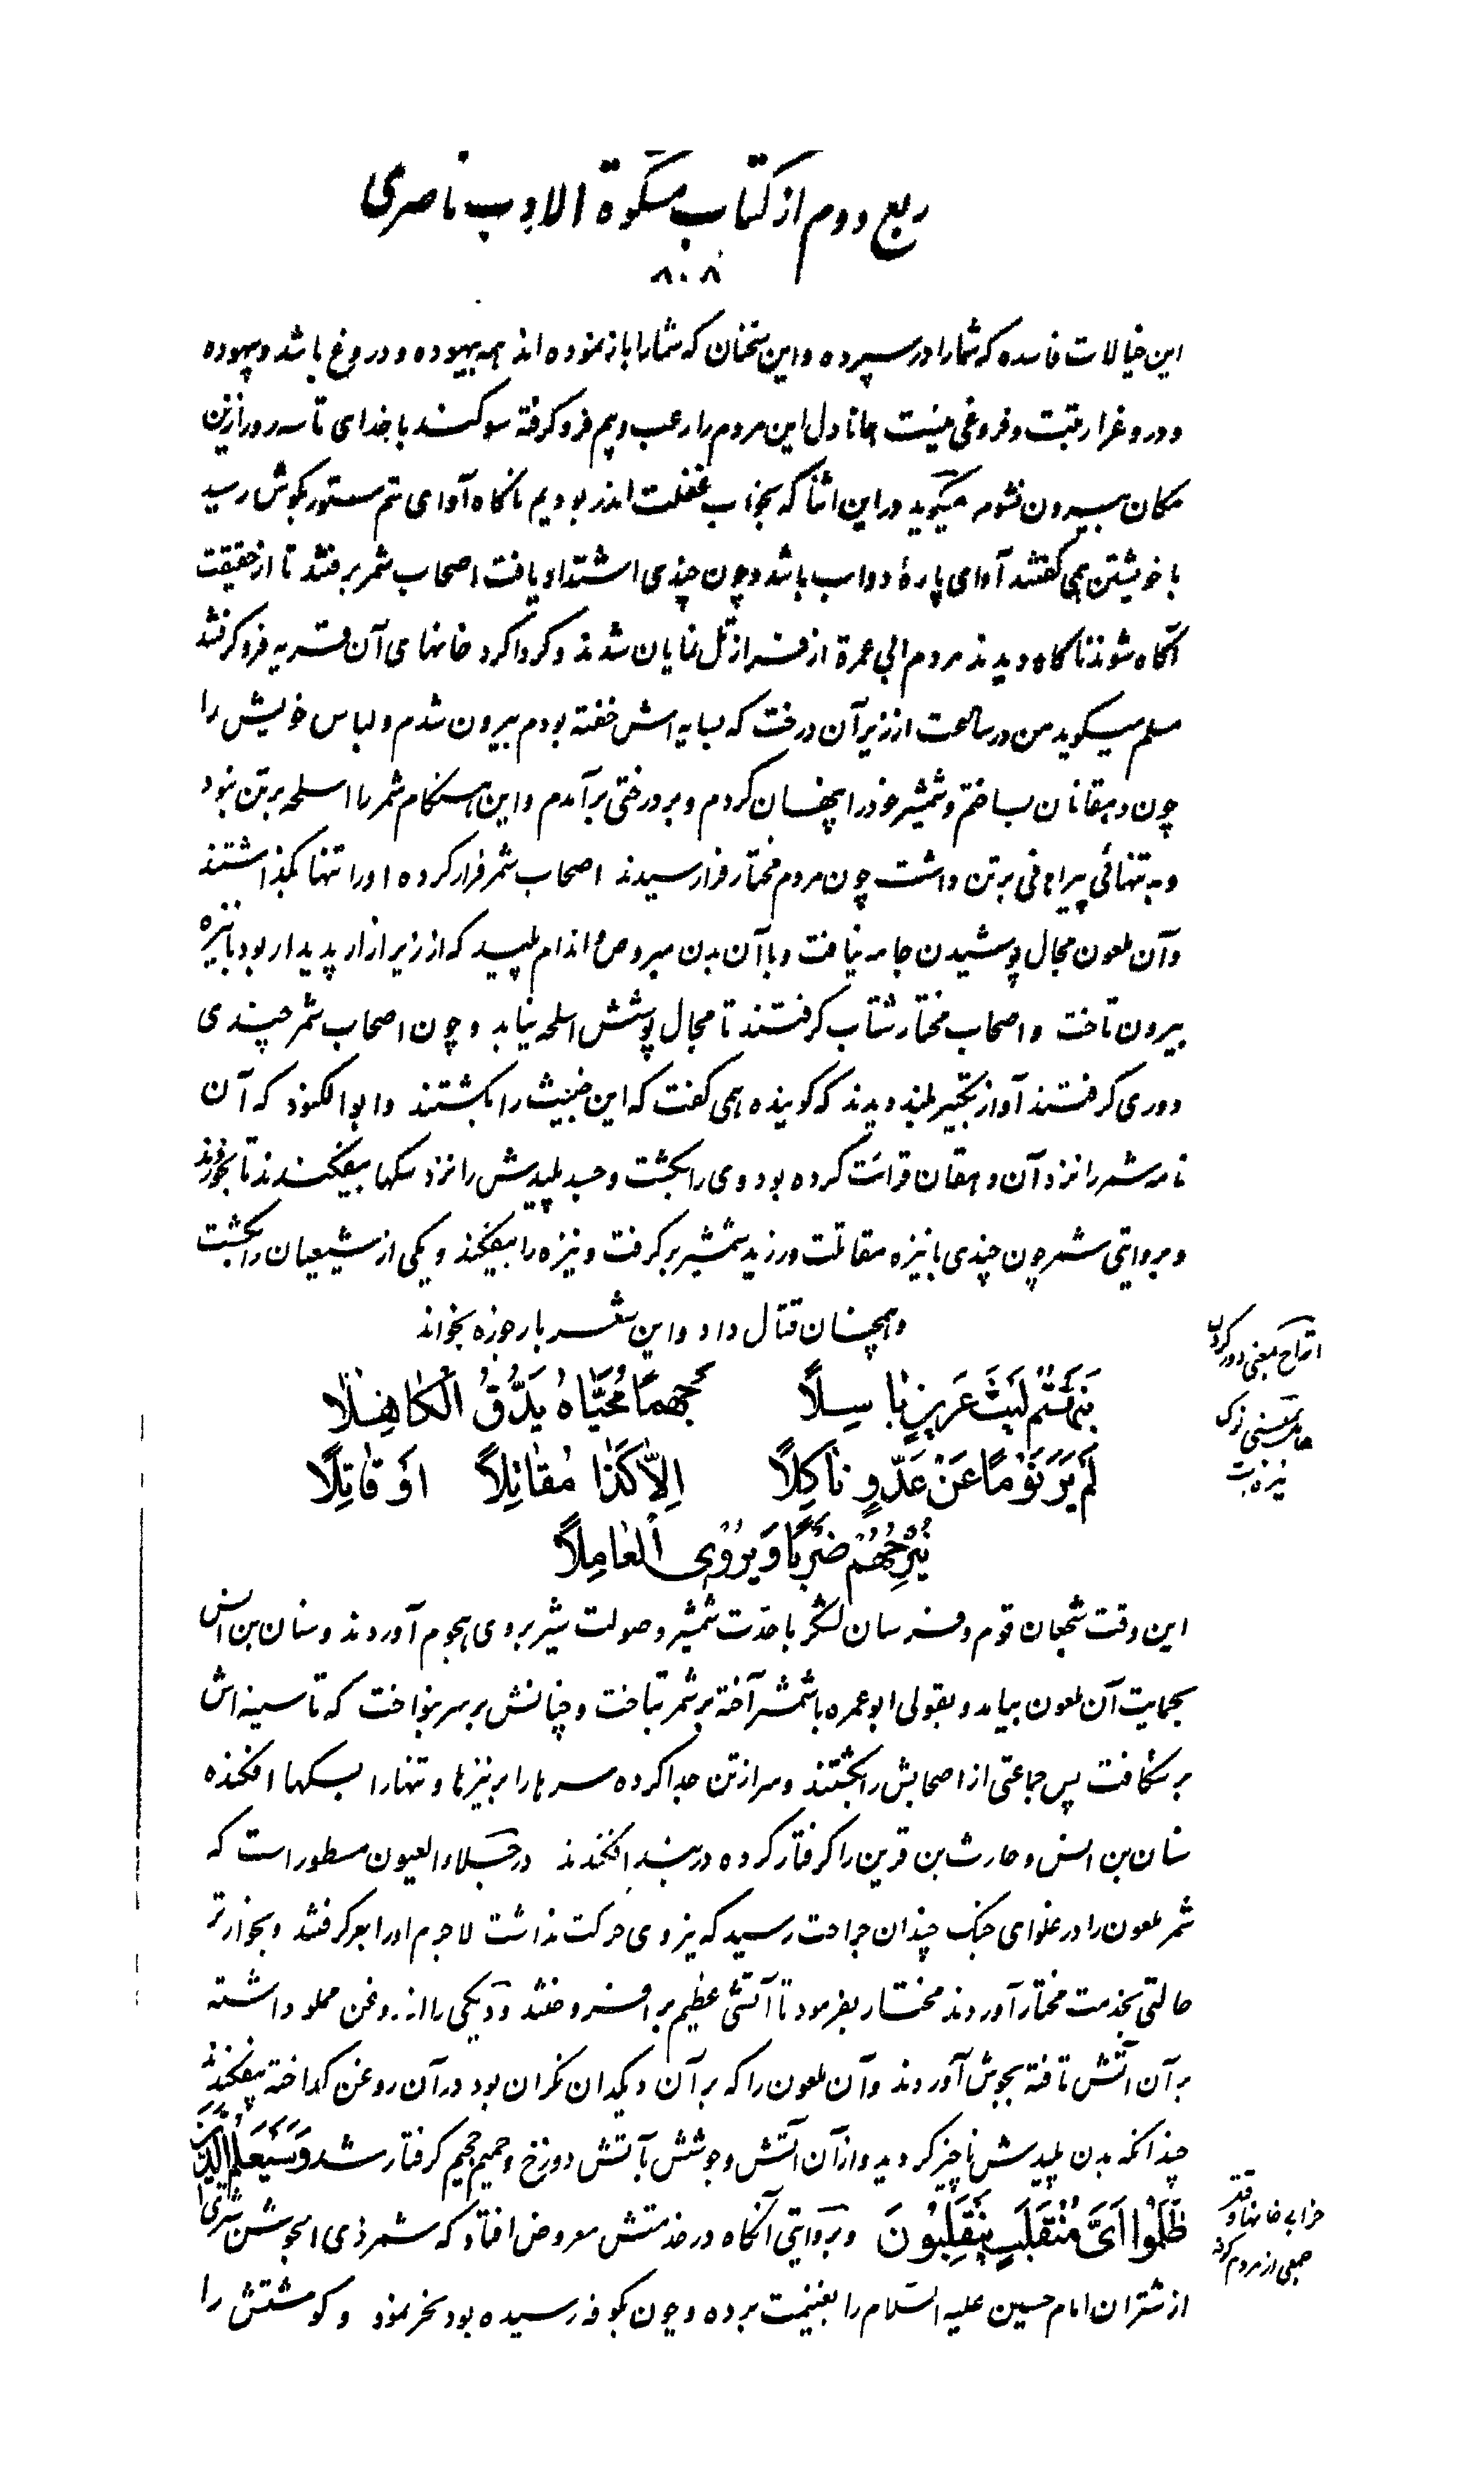 ربع دوم از کتاب مشکوة الادب ناصری
۸۰۸
این خیالات فاسده که شما را در سپرده و این سخنان که شما را باز نموده اند همه بیهوده و دروغ باشد و بیهوده
و دروغ را رتبت و فروغی نیست همانا دل این مردم را رعب و بیم فرو گرفته سوگند با خدای تا سه روز ازین
مکان بیرون نشوم میگوید در این اثنا که بخواب غفلت اندر بودیم ناگاه آوای سم ستور بگوش رسید
با خویشتن همی گفتند آوای پارهٔ دواب باشد و چون چندی اشتداد یافت اصحاب شمر برفتند تا از حقیقت
آگاه شوند ناگاه دیدند مردم ابی عمرة از فراز تل نمایان شدند و گرداگرد خانهای آن قریه فرو گرفتند
مسلم میگوید من در ساعت از زیر آن درخت که بسایه اش خفته بودم بیرون شدم و لباس خویش را
چون دهقانان بساختم و شمشیر خود را پنهان کردم و بر درختی برآمدم و این هنگام شمر را اسلحه بر تن نبود
و به تنهائی پیراهنی بر تن داشت چون مردم مختار فرا رسیدند اصحاب شمر فرار کرده او را تنها بگذاشتند
و آن ملعون مجال پوشیدن جامه نیافت و با آن بدن مبروص و اندام پلید که از زیر ازار پدیدار بود با نیزه
بیرون تاخت و اصحاب مختار شتاب گرفتند تا مجال پوشش اسلحه نیابد و چون اصحاب شمر چندی
دوری گرفتند آواز تکبیر بلند دیدند که گوینده همی گفت که این خبیث را بکشتند و ابو الکنود که آن
نامه شمر را نزد آن دهقان قرائت کرده بود وی را بکشت و جسد پلیدش را نزد سگها بیفکندند تا بخوردند
و بروایتی شمر چون چندی با نیزه مقاتلت ورزید شمشیر برگرفت و نیزه را بیفکند و یکی از شیعیان را بکشت
و همچنان قتال داد و این شعر بارجوزه بخواند
نَبَّهْتُمُ لَيْثَ عَرِينٍ بَاسِلًا جَهْمًا مُحَيَّاهُ يَدُقُّ الْكَاهِلَا
لَمْ يُرَ يَوْمًا عَنْ عَدُوٍّ نَاكِلًا إِلَّا كَذَا مُقَاتِلًا أَوْ قَاتِلًا
يُبْرِحُهُمْ ضَرْبًا وَيُرْوِی الْعَامِلَا
ابراح بمعنی دور کردن
عامل بمعنی نزدیک
نیزه است
این وقت شجعان قوم و فرسان لشکر با حدّت شمشیر و صولت شیر بر وی هجوم آوردند و سنان بن انس
بحمایت آن ملعون بیامد و بقولی ابو عمره با شمشیر آخته بر شمر بتاخت و چنانش بر سر بنواخت که تا سینه اش
برشکافت پس جماعتی از اصحابش را بکشتند و سر از تن جدا کرده سرها را بر نیزها و تنها را بسگها افکنده
سنان بن انس و حارث بن قرین را گرفتار کرده در بند افکندند در جلاء العیون مسطور است که
شمر ملعون را در غلوای جنگ چندان جراحت رسید که نیروی حرکت نداشت لاجرم او را بر گرفتند و بخوارتر
حالتی بخدمت مختار آوردند مختار بفرمود تا آتشی عظیم بر افروختند و دیگی را از روغن مملو داشته
بر آن آتش تافته بجوش آوردند و آن ملعون را که بر آن دیگدان نگران بود در آن روغن گداخته بیفکندند
چندانکه بدن پلیدش ناچیز گردید و از آن آتش و جوشش بآتش دوزخ و حمیم جحیم گرفتار شد وَسَيَعْلَمُ الَّذِينَ
ظَلَمُوا أَيَّ مُنْقَلَبٍ يَنْقَلِبُونَ و بروایتی آنگاه در خدمتش معروض افتاد که شمر ذی الجوشن شتری
از شتران امام حسین علیه السلام را بغنیمت برده و چون بکوفه رسیده بود نحر نمود و گوشتش را
خرابی خانها و قتل
جمعی از مردم کوفه